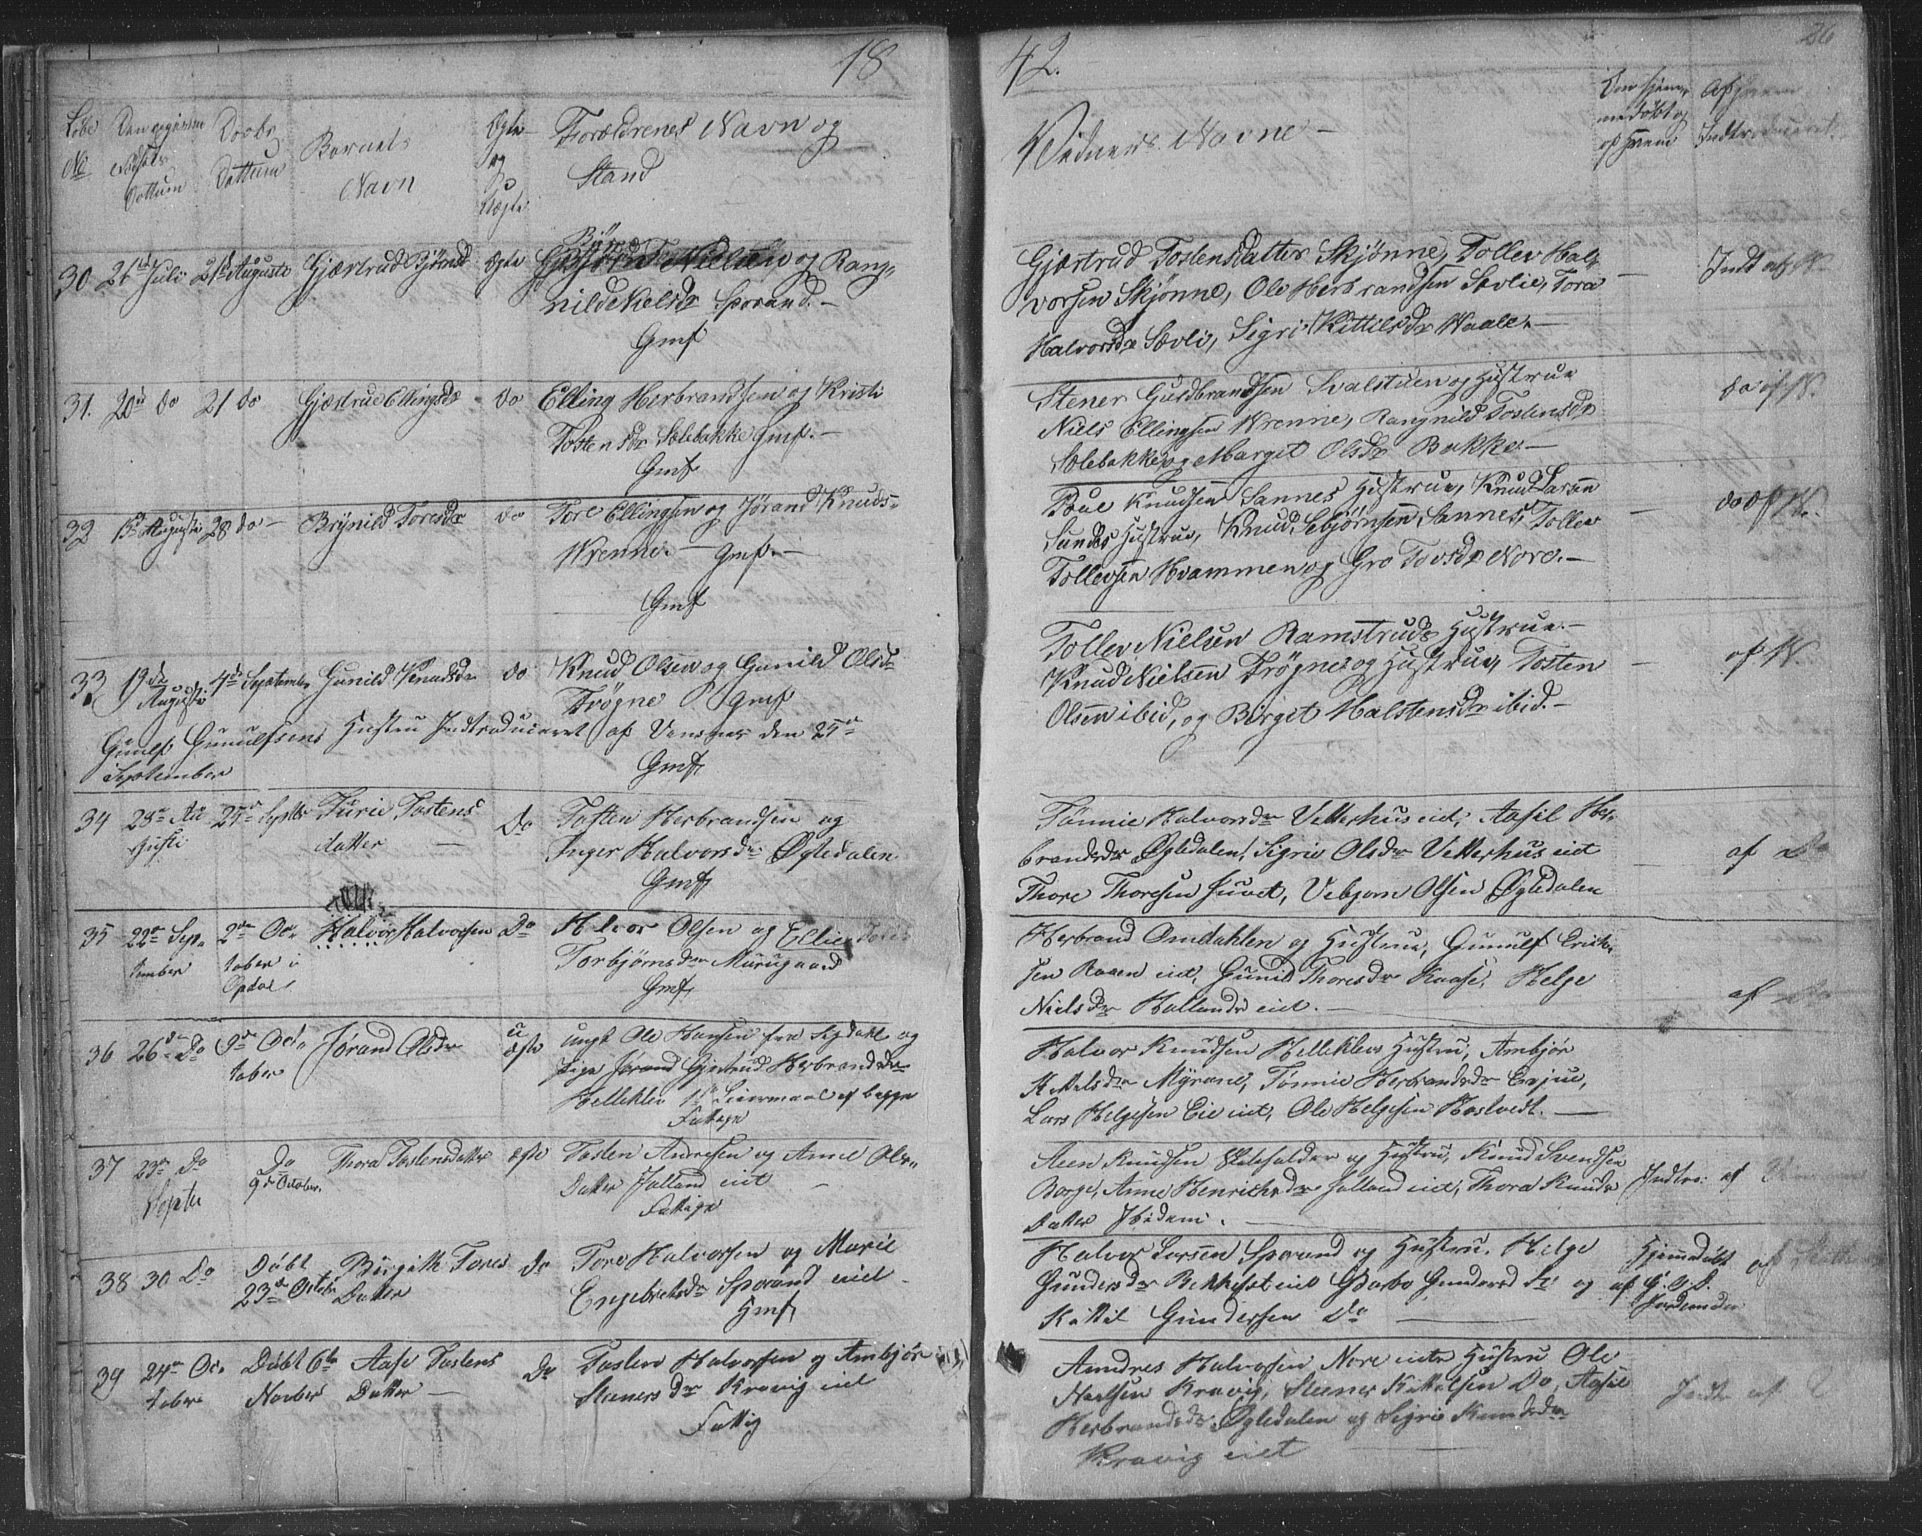 18
42.
26
Løbe No
Den registre Fødsels Dattum
Daabs Dattum
Barnets Navn
Ægte og Uægte
Forældrenes Navn og Stand
Vidners Navne
Om hjemmedøbt og af hvem
Af hvem Indtroduceret.
30 21de Julii 21de Augusti Gjærtrud Bjørnsd Ægte
Bjørn Nielsen og Rang-
nild Kelsdr Sporand.
Gmf
Gjærtrud Tostensdatter Skjønne, Tollev Hal-
vorsen Skjønne, Ole Herbrandsen Sævlie, Tora
Halvorsdr Sævli, Sigri Kittilsdr Waale.
Indt af W.
31. 20de do 21 do Gjærtrud Ellingsdr do
Elling Herbrandsen og Kristi
Tostensdr Sælebakke gmf.
Gmf
Stener Guldbrandsen Svalstuen og Hustrue
Niels Ellingsen Wrenne, Rangnild Tostensdr
Sælebakke, og Margit Olsdr Bakke
do af W.
32 13de Augusti 28 do Brynild Toresdr do
Tore Ellingsen og Jørand Knuds-
Wrenne. gmf.
Gmf
Paul Knudsen Sannes Hustrue, Knud Larsen
Sandes Hustrue, Knud Sebjørnsen Sannes, Tollev
Tollevsen Hvammen og Gro Tovsdr Nore.
do af W.
33 19de Augusti 4de September Gunild Knudsdr do
Knud Olsen og Gunild Olsd
Frøgne Gmf
Tollev Nielsen Ramstruds Hustrue.
Knud Nielsen Frøgne og Hustrue, Tosten
Olsen ibid, og Birget Halstensdr ibid.
af W.
Gunulf Gunulfsens Hustru Indtroduceret af Vensnes den 25de
September
Gmf
34 23de Augusti 25de Septbr Turie Tostens datter Do
Tosten Herbrandsen og
Inger Halvorsdr Øgledalen
Gmf
Tønnie Halvorsdr Vetterhus eid, Aasil Her-
brandsdr Øgledalen, Sigrie Olsdr Vetterhus eid
Thore Thoresen Juvet, Vebjørn Olsen Øgledalen
af Do
35 22de September 2den October i Opdal Halvor Halvorsen Do
Halvor Olsen og Ellie
Torbjørnsdr Murugaard
Gmf
Herbrand Omdahlen og Hustrue, Gunulf Erik-
sen Raaen eid, Gunild Thoresdr Kaase, Helge
Nielsdr Hallands eid.
af Do
36 26de Do 9de October Jørand Olsdr uægte
ungk Ole Hansen fra Sigdahl og
Pige Jørand Gjertrud Herbrandsdr
Helleklev 1ste Leiermaal af begge
Fattige
Halvor Knudsen Helleklev Hustru, Ambjør
Kittelsdr Myrane, Tønnie Herbrandsdr Enjue,
Lars Helgesen Eie eid, Ole Helgesen Haslevedt.
37 23de Do Septbr Do 9de October Thora Tostensdatter ægte
Tosten Andresen og Anne Ols-
Datter Jalland eid
Fattige
Steen Knudsen og Hustru, Knud Svendsen
Borge, Anne Henrichsdr Jalland eid, Thora Knuds
Datter Ibidem.
Indtro: af
38 30 Do Døbt 23de Octobr Birgitte Tores Datter do
Tore Halvorsen og Marie
Engebretsdr Sporand eid
Hmf
Halvor Larsen Sporand og Hustru, Helge
Gundersdr Bekkesæt eid Barbo Gundersd Do og
Kittil Gundersen Do
Hjemmdøbt af G. O. S. Jordemoder
af
39 24de October Døbt 6te Novber Aase Tostens Datter Do
Tosten Halvorsen og Ambjør
Steenersdr Kravig eid
Fattig
Andres Halvorsen Nore eiets Hustru Ole
Nielsen Kravig, Steener Kittilsen Do, Aasil
Herbrandsdr Øgledalen og Sigrie Knudsdr
Kravig eid
Indt af